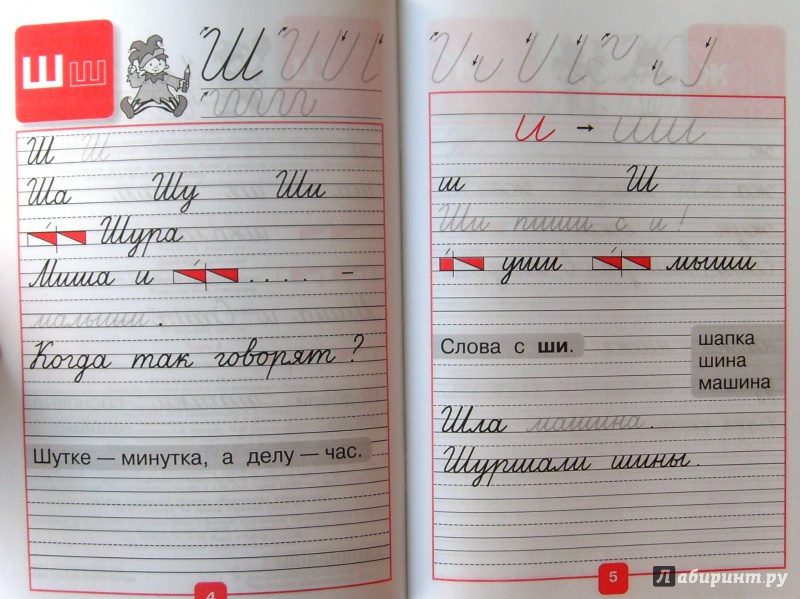 Ш ш
Ш Ш Ш
Ш Ш
Ша Шу Ши
Шура
Миша и . . . . –
малыши.
Когда так говорят?
Шутке — минутка, а делу — час.
4
и → ши
ш Ш
Ши пиши с и!
уши мыши
Слова с ши.
шапка
шина
машина
Шла машина.
Шуршали шины.
5
Лабиринт.ру